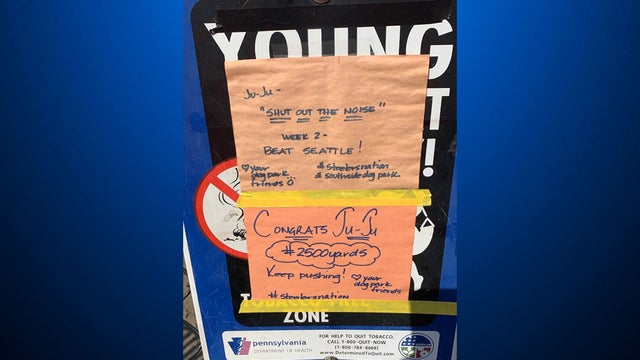 YOUNG
Ju-Ju-
"SHUT OUT THE NOISE"
WEEK 2-
BEAT SEATTLE!
♡ your
dog park
friends
#steelersnation
#southside dog park
T!
CONGRATS JU-JU
#2500yards
Keep pushing!
♡ your
dog park
friends
#steelersnation
TOBACCO FREE
ZONE
pennsylvania
DEPARTMENT OF HEALTH
FOR HELP TO QUIT TOBACCO,
CALL 1-800-QUIT-NOW
(1-800-784-8669)
www.DeterminedToQuit.com